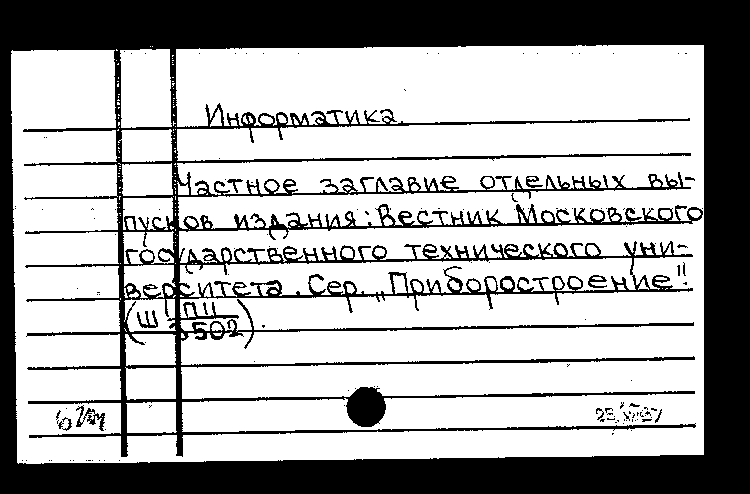 Информатика.
Частное заглавие отдельных вы-
пусков издания: Вестник Московского
государственного технического уни-
верситета. Сер. „Приборостроение“.
(Ш ПII
3502).